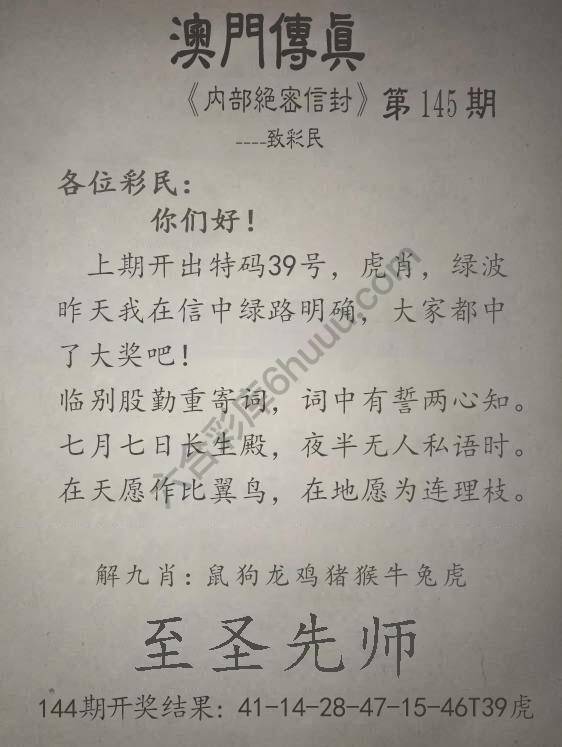 澳門傳真
《内部絕密信封》第145期
----致彩民
各位彩民：
你们好！
上期开出特码39号，虎肖，绿波
昨天我在信中绿路明确，大家都中
了大奖吧！
临别股勤重寄词，词中有誓两心知。
七月七日长生殿，夜半无人私语时。
在天愿作比翼鸟，在地愿为连理枝。
六合彩库6huuu.com
解九肖：鼠狗龙鸡猪猴牛兔虎
至圣先师
144期开奖结果：41-14-28-47-15-46T39虎